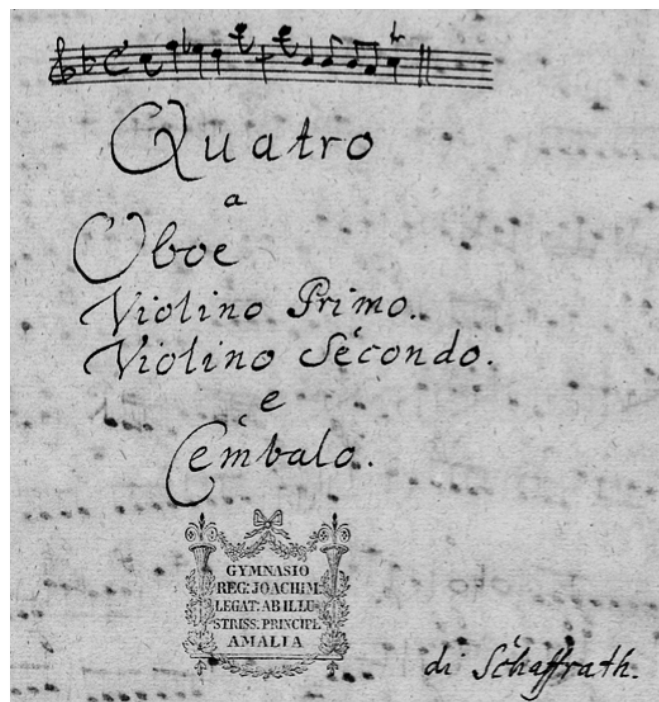 Quatro
a
Oboe
Violino Primo.
Violino Secondo.
e
Cembalo.
GYMNASIO
REG: JOACHIM:
LEGAT: AB ILLU-
STRISS. PRINCIPE
AMALIA
di Schaffrath.